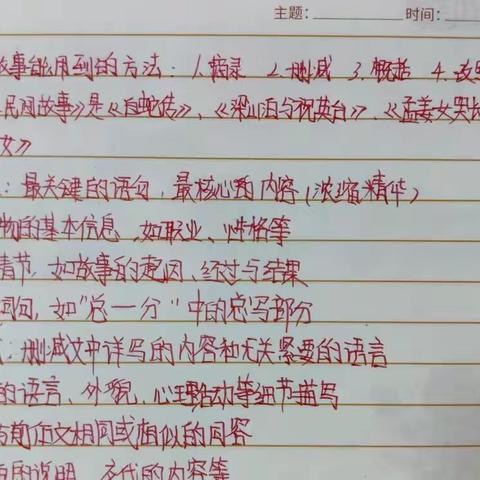 主题: 时间:
故事能用到的方法：1.摘录 2.删减 3.概括 4.改
民间故事》是《白蛇传》、《梁山泊与祝英台》、《孟姜女哭长
女》
：最关键的语句，最核心的内容（浓缩精华）
物的基本信息，如职业、性格等
情节，如故事的起因、经过与结果
词句，如“总一分”中的总写部分
：删减文中详写的内容和无关紧要的语言
的语言、外貌、心理活动等细节描写
与前面文相同或相似的内容
的说明、交代的内容等